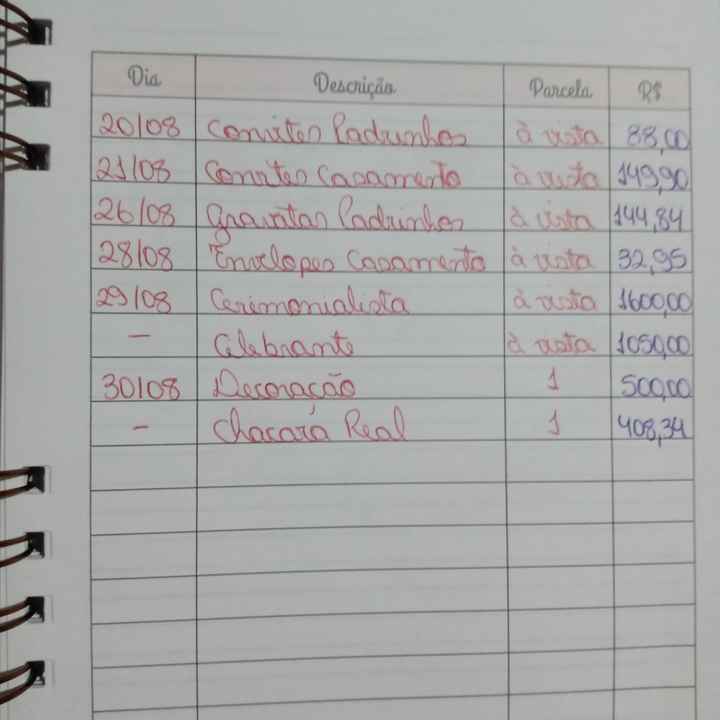 Dia Descrição Parcela R$
20/08 Convites Padrinhos à vista 88,00
21/08 Convites Casamento à vista 149,90
26/08 Gravatas Padrinhos à vista 144,84
28/08 Envelopes Casamento à vista 32,95
29/08 Cerimonialista à vista 1600,00
- Celebrante à vista 1050,00
30/08 Decoração 1 500,00
- Chacará Real 1 408,34